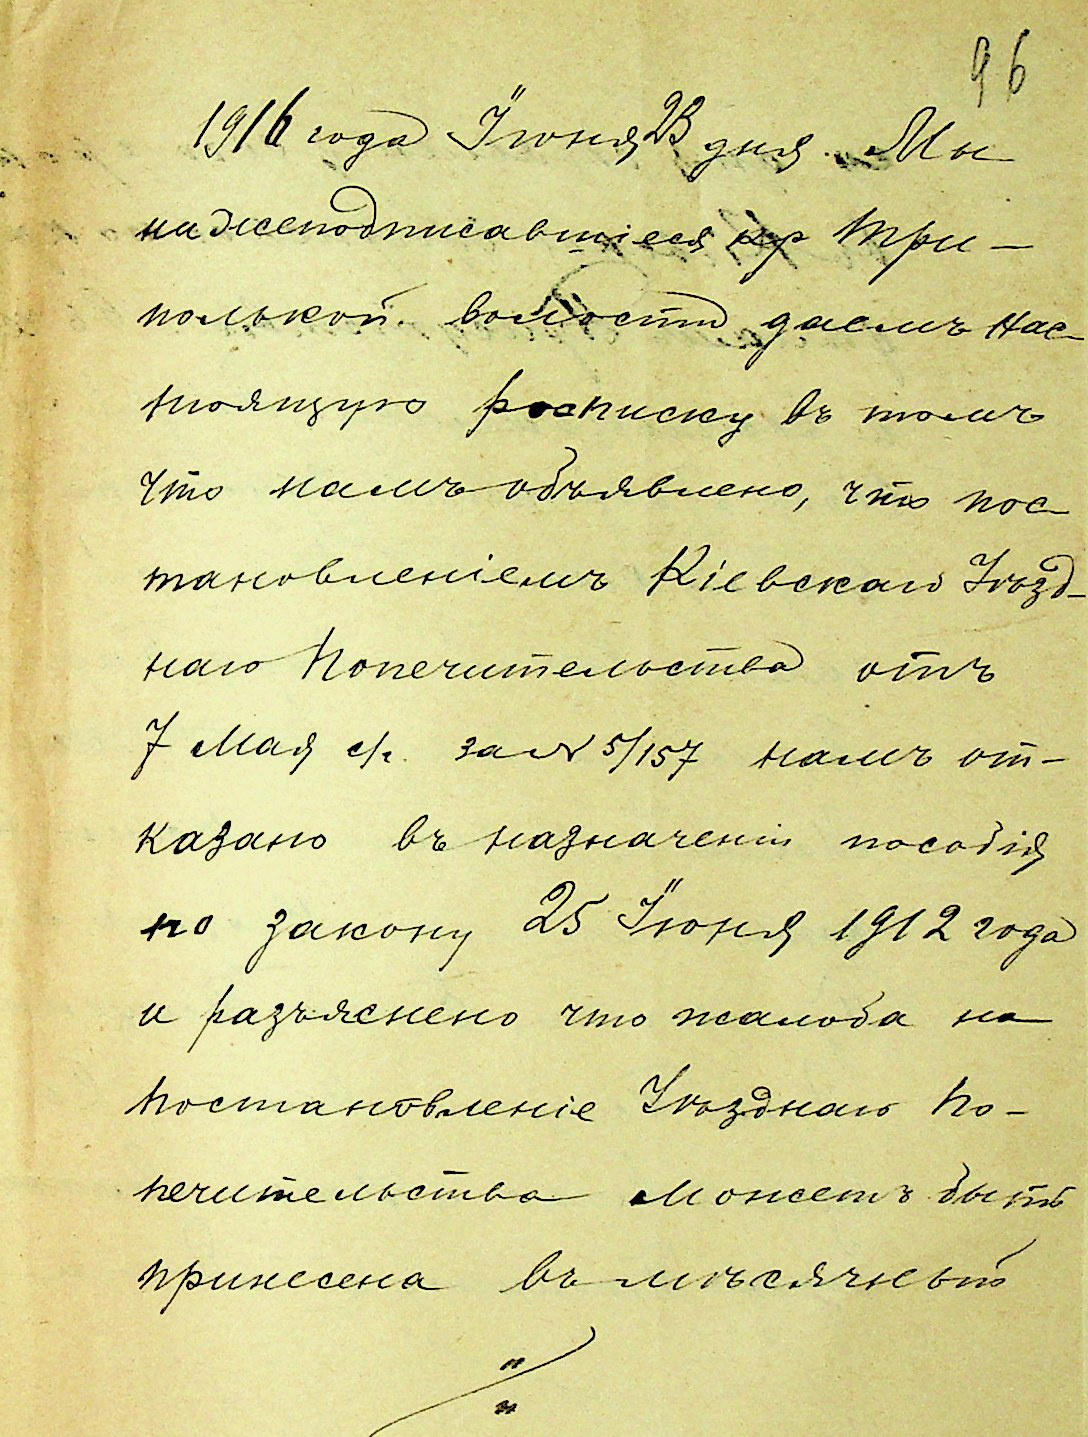 96
1916 года Іюня 23 дня. Мы
нижеподписавшіеся кр Три-
полькой волости даемъ нас-
тоящую росписку въ томъ
что намъ объявлено, что пос-
тановленіемъ Кіевскаго Уѣзд-
наго Попечительства отъ
7 Мая с/г. за № 5/157 намъ от-
казано въ назначеніи пособія
по закону 25 Іюня 1912 года
и разъяснено что жалоба на
постановленіе Уѣзднаго По-
печительства можетъ быть
принесена въ мѣсячный